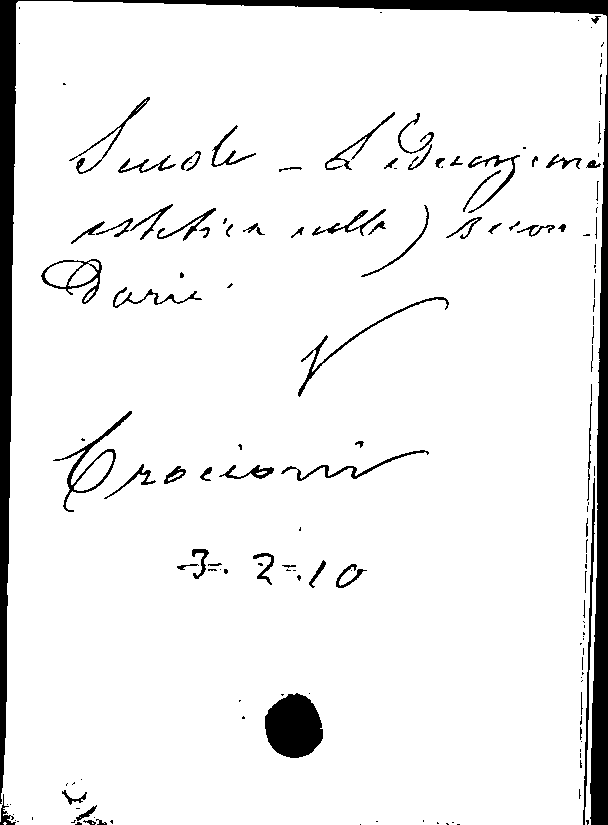 Scuole - L'educazione
estetica nelle) secon-
darie.
V
Crocioni
3. 2. 10